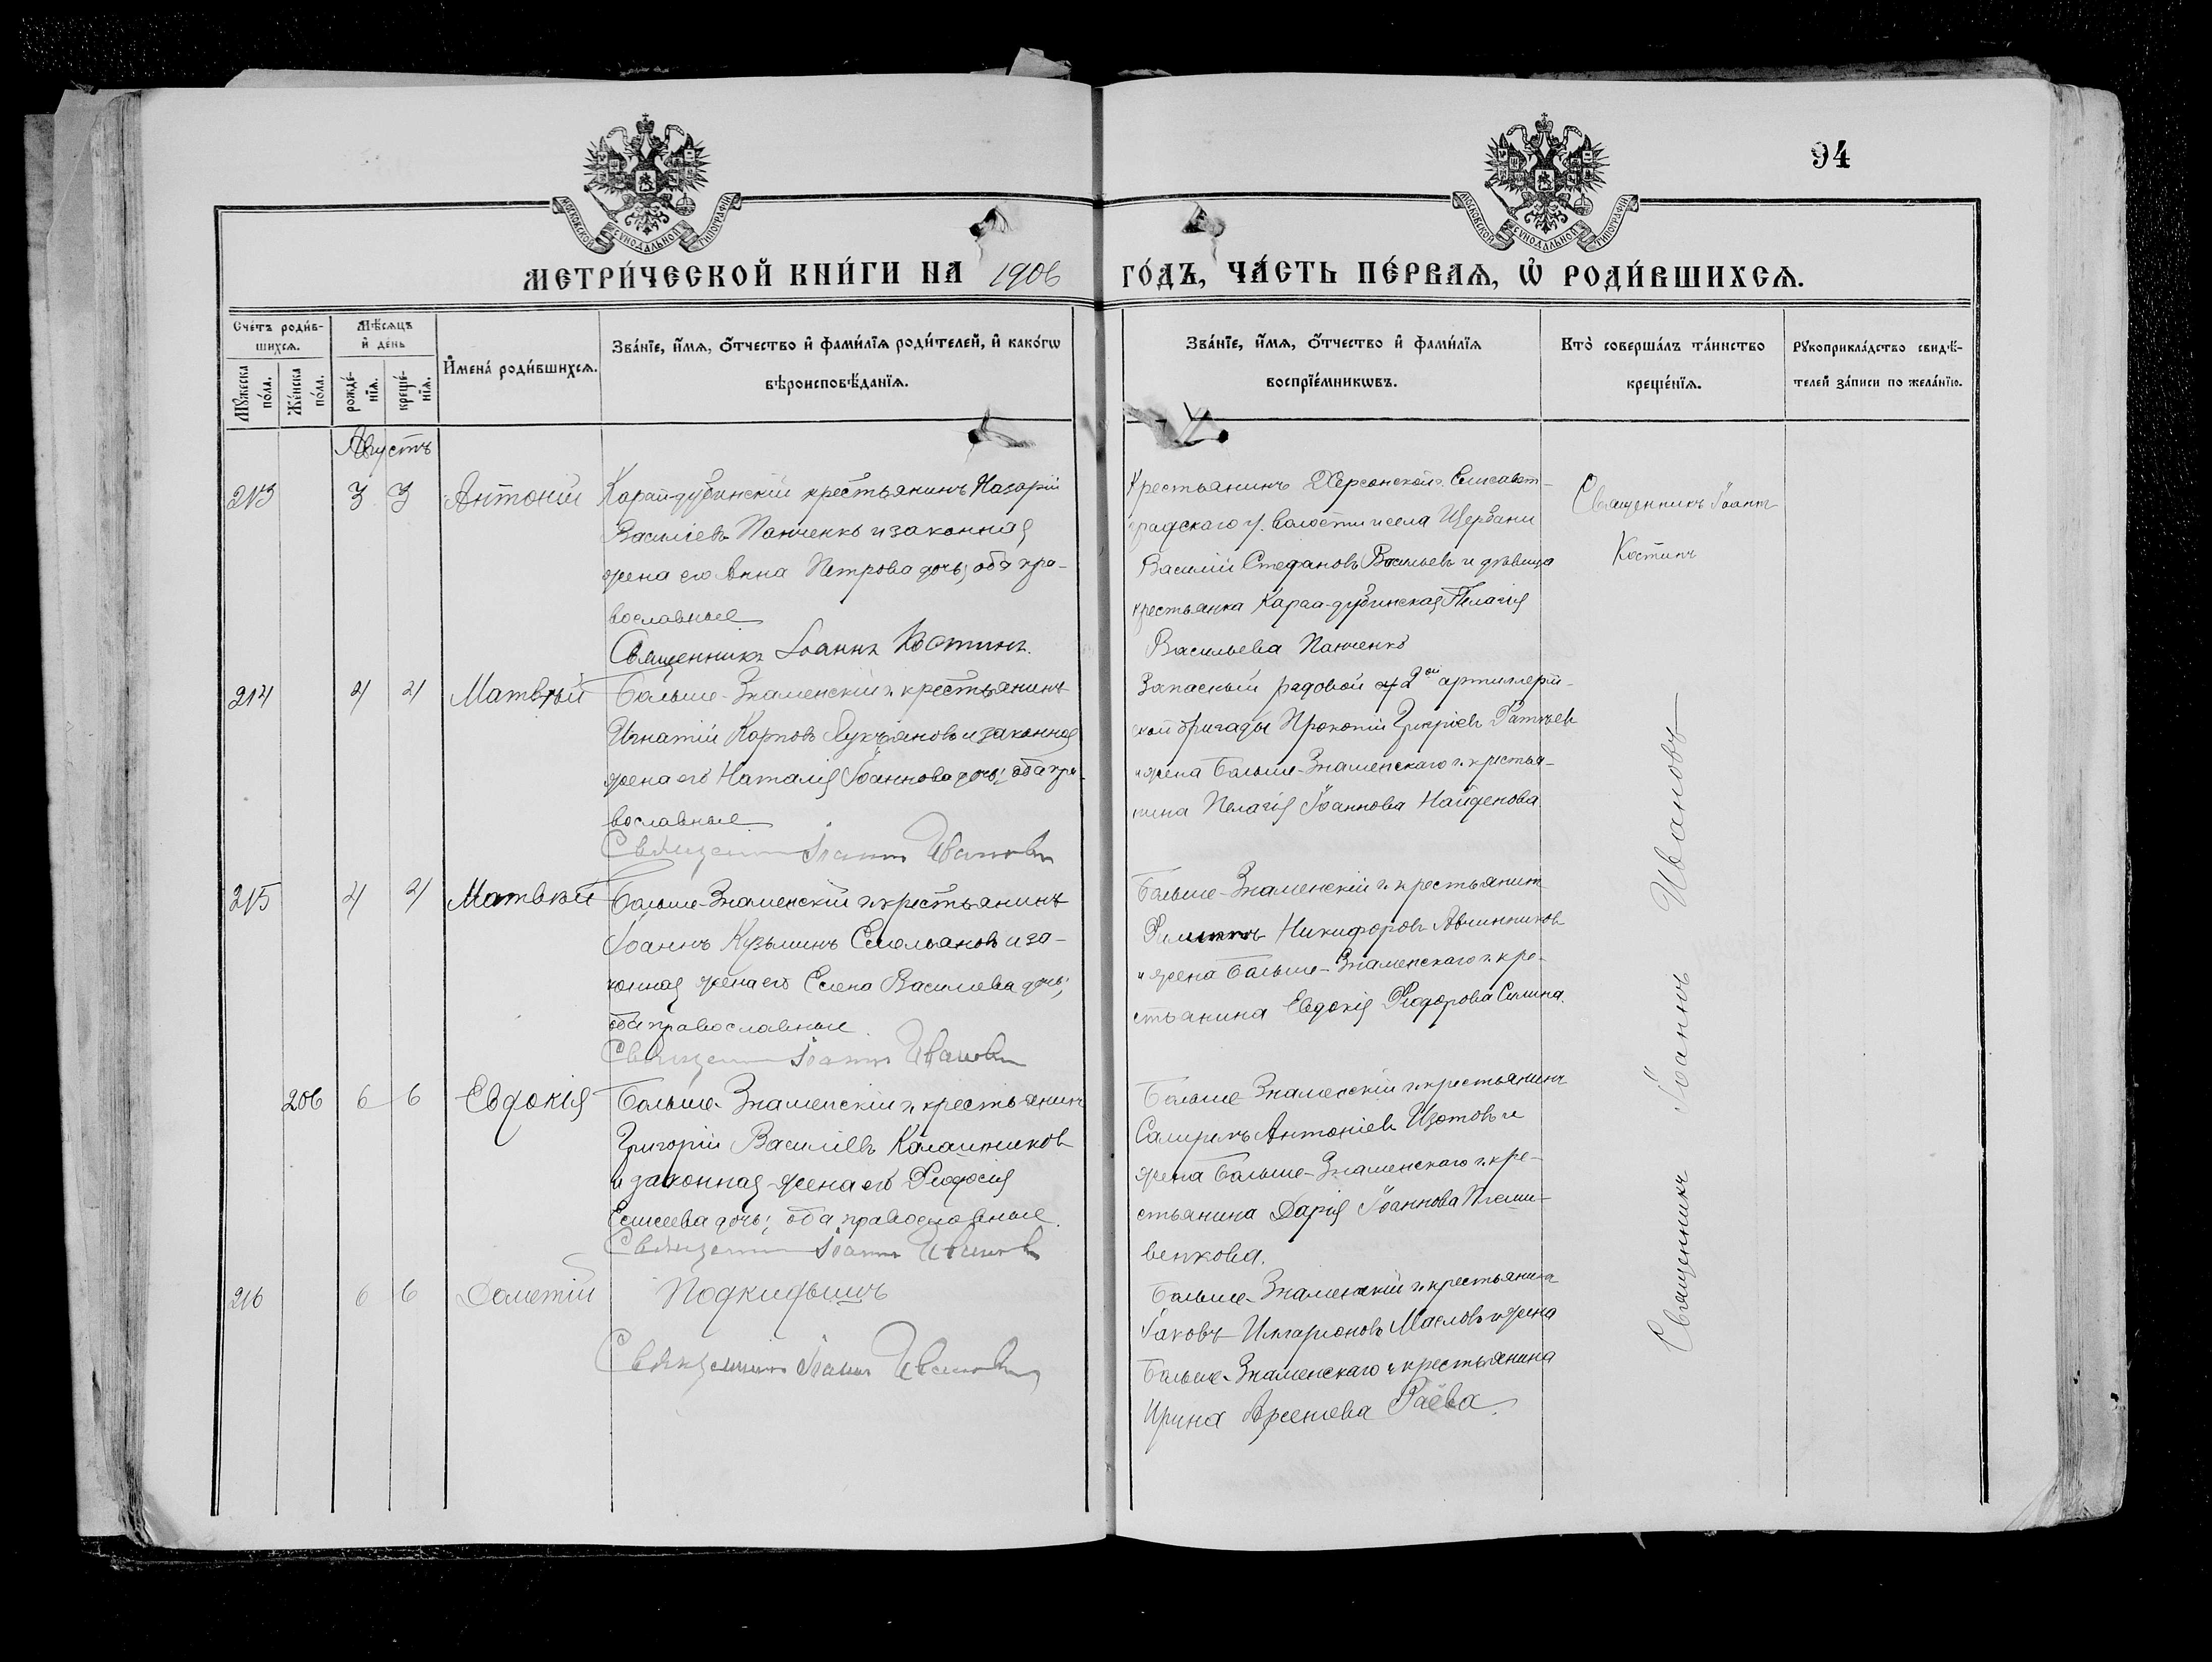 94
МОСКОВСКОЙ СУНОДАЛЬНОЙ ТИПОГРАФІИ
МОСКОВСКОЙ СУНОДАЛЬНОЙ ТИПОГРАФІИ
МЕТРИ́ЧЕСКОЙ КНИ́ГИ НА 1906 ГО́ДЪ, ЧА́СТЬ ПЕ́РВАѦ, Ѡ҆ РОДИ́ВШИХСѦ.
Сче́тъ роди́в-
шихсѧ.
Мꙋжеска по́ла.
Же́нска по́ла.
Мѣ́сѧцъ
и҆ де́нь
рожде́-
нїѧ.
креще́-
нїѧ.
И҆мена̀ роди́вшихсѧ.
Зва́нїе, и҆́мѧ, ѻ҆́тчество и҆ фами́лїѧ роди́телей, и҆ како́гѡ
вѣроисповѣ́данїѧ.
Зва́нїе, и҆́мѧ, ѻ҆́тчество и҆ фами́лїѧ
воспрїе́мникѡвъ.
Кто̀ соверша́лъ та́инство
креще́нїѧ.
Рꙋкоприкла́дство свидѣ́-
телей за́писи по жела́нїю.
Августъ
213 3 3 Антоній
Карай-дубинскій крестьянинъ Назарій
Василіевъ Панченко и законная
жена его Анна Петрова дочь; оба пра-
вославные
Священникъ Іоаннъ Костинъ.
Крестьянинъ Херсонской г. Елисавет-
градскаго у. волости и села Щербани
Василій Стефановъ Васильевъ и дѣвица
крестьянка Карай-дубинская Пелагія
Васильева Панченко
Священникъ Іоаннъ
Костинъ
214 4 4 Матвѣй
Больше-Знаменскій г. крестьянинъ
Игнатій Карповъ Лукъяновъ и законная
жена его Наталія Іоаннова дочь; оба пра-
вославные
Священникъ Іоаннъ Ивановъ
Запасный рядовой 42ой артиллерій-
ской бригады Прокопій
и жена Больше-Знаменскаго г. крестья-
нина Пелагія Іоаннова Найденова
215 4 4 Матвѣй
Больше-Знаменскій г. крестьянинъ
Іоаннъ Кузьминъ Смольяновъ и за-
конная жена его Елена Василіева дочь;
оба православные.
Священникъ Іоаннъ Ивановъ
Больше-Знаменскій г. крестьянинъ
Филиппъ Никифоровъ Авчинниковъ
и жена Больше-Знаменскаго г. кре-
стьянина Евдокія Ѳеодорова Силина.
206 6 6 Евдокія
Больше-Знаменскій г. крестьянинъ
Григорій Василіевъ Калашниковъ
и законная жена его Ѳеодосія
Елисеева дочь; оба православные.
Священникъ Іоаннъ Ивановъ
Больше Знаменскій г. крестьянинъ
Антоніевъ Изотовъ и
жена Больше-Знаменскаго г. кре-
стьянина Дарія Іоаннова Плеши-
венкова.
216 6 6 Дометій
Подкидышъ
Священникъ Іоаннъ Ивановъ
Больше-Знаменскій г. крестьянинъ
Іаковъ Иларіоновъ Масловъ и жена
Больше-Знаменскаго г. крестьянина
Ирина Арсеньева Раева.
Священникъ Іоаннъ Ивановъ